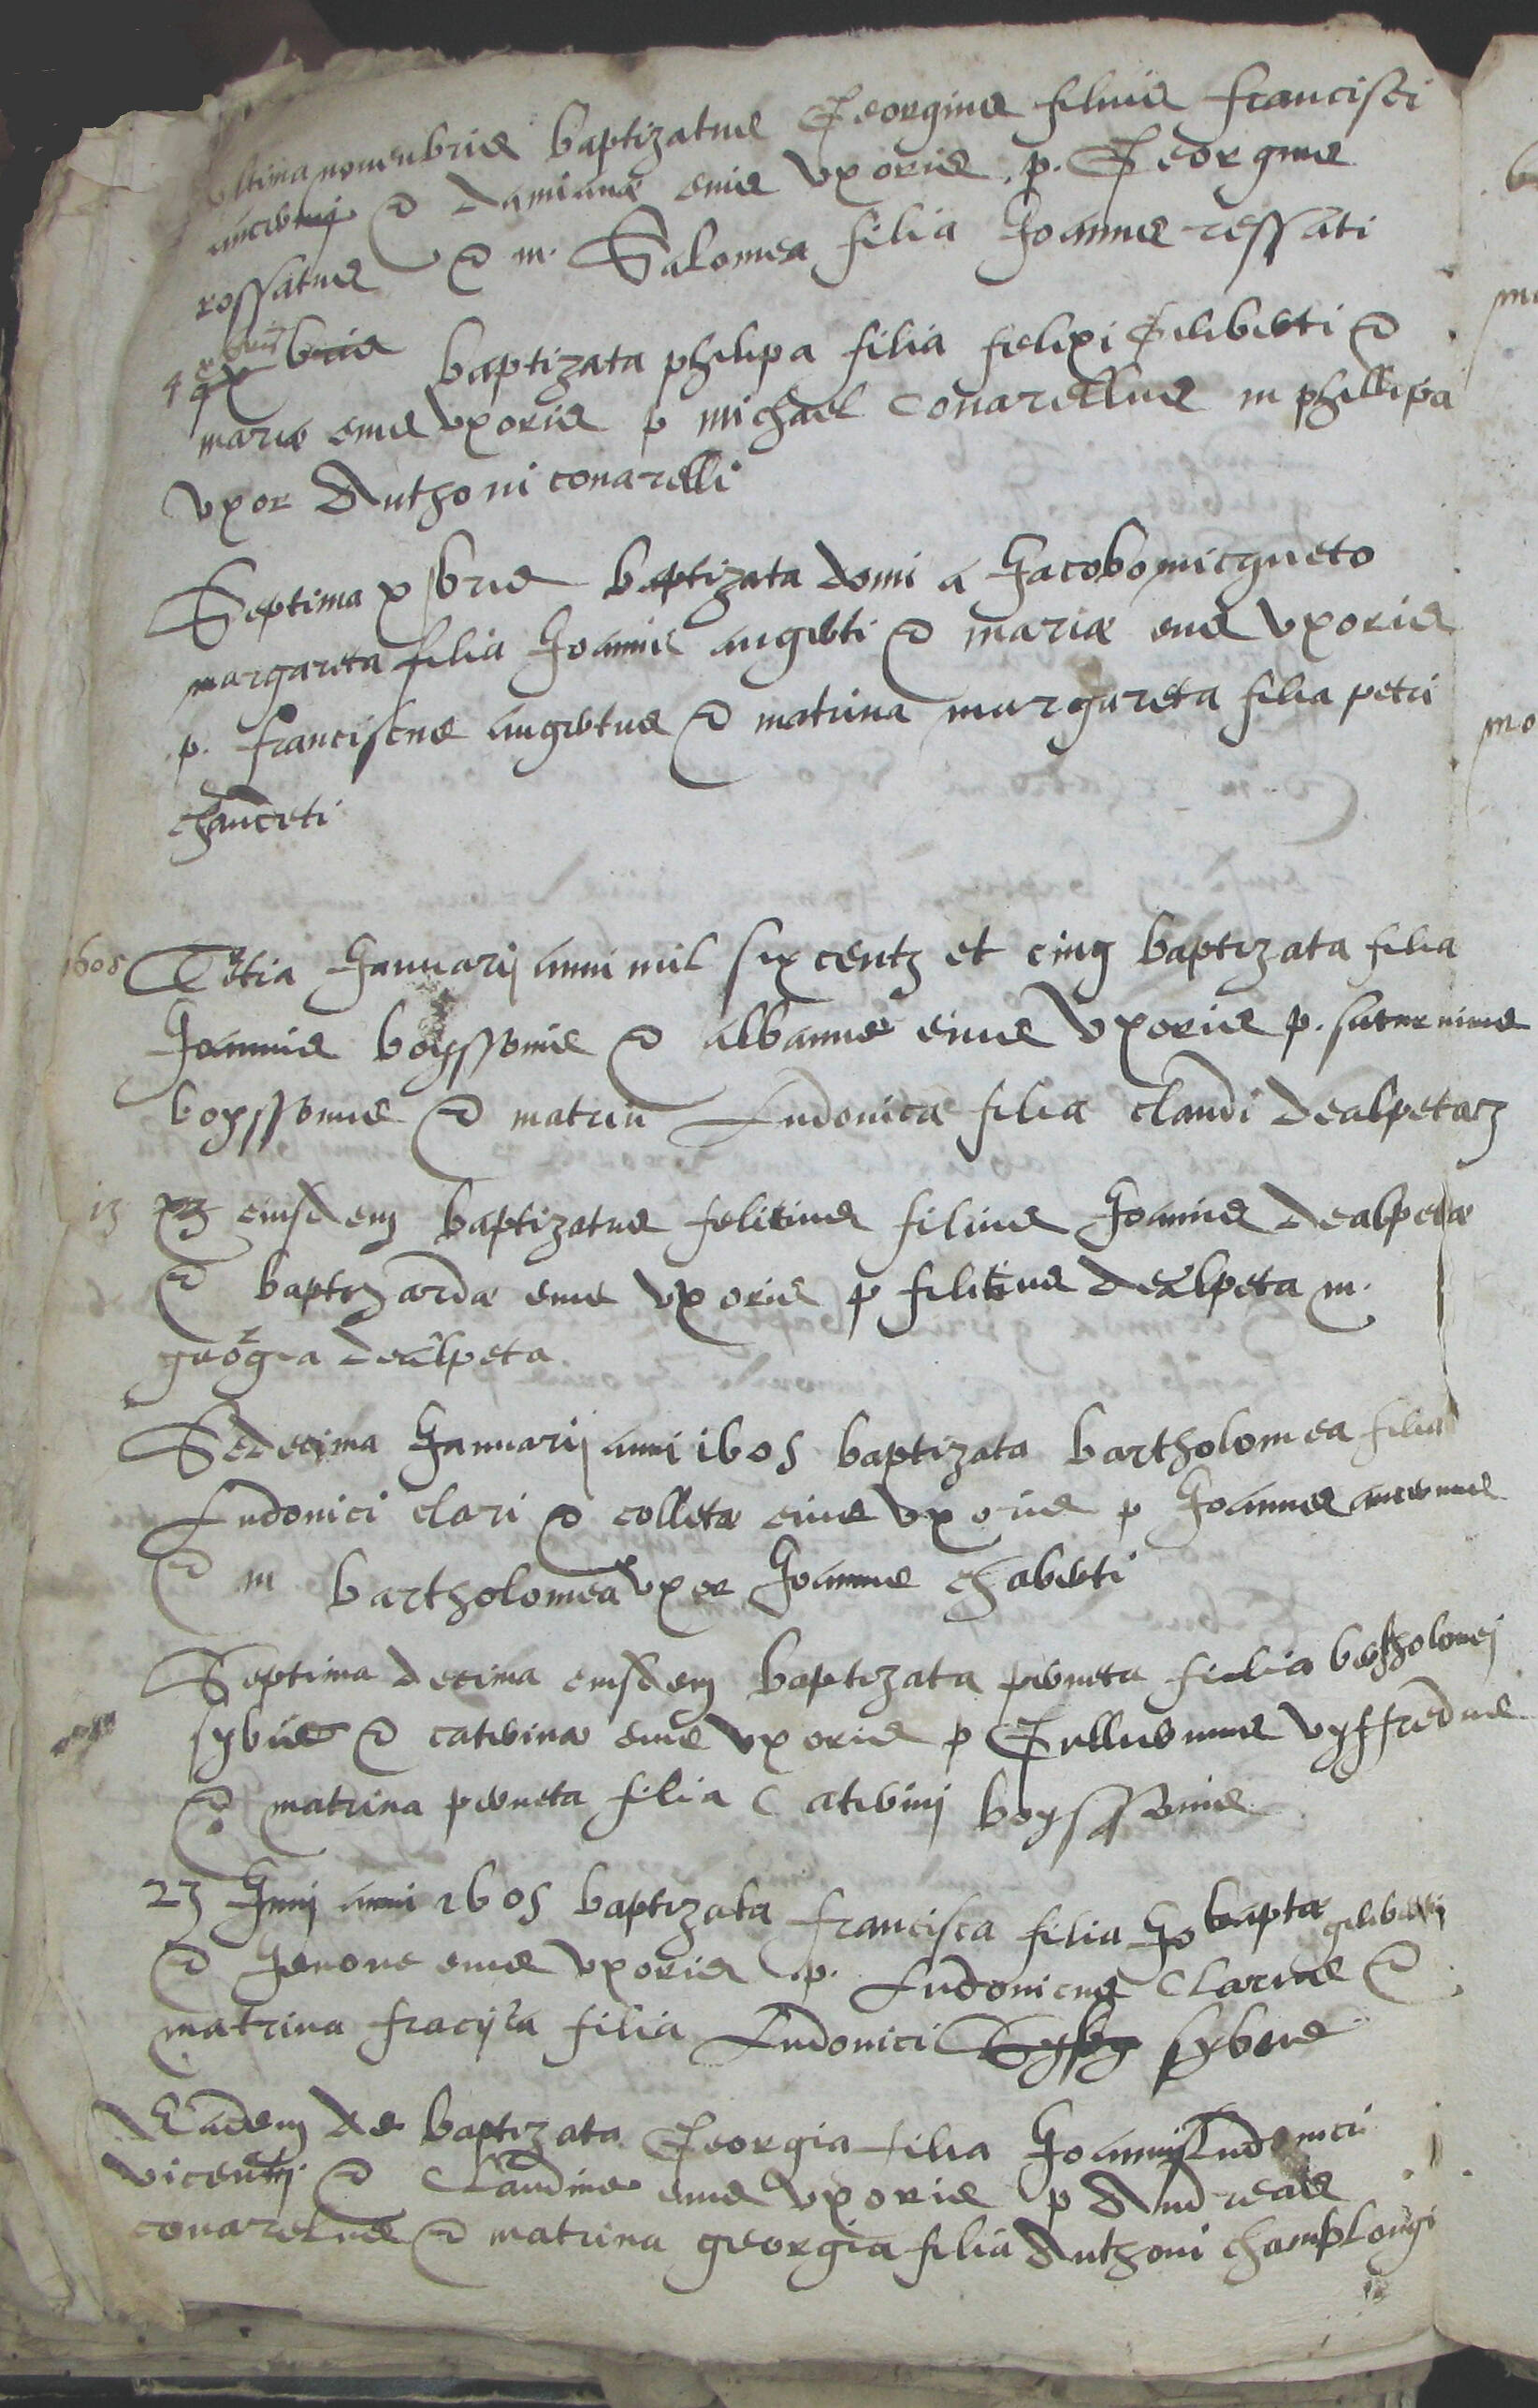 ultima novenbris baptizatus Georgius filius francisci
anceonij & damianæ eius uxoris. p. Georgius
rossatus & m. Salomea filia Joannis rossati
4 xbris baptizata philipa filia felixi Giliberti &
mariæ eius uxoris p michael conarellus m phillipa
uxor Anthoni conarelli
Septima xbris baptizata domi a Jacobo micqueto
margareta filia Joannis angerti & mariæ eius uxoris
p. franciscus angertus & matrina margareta filia petri
chanceti
1605 Tertia Januarij anni mil six centz et cinq baptizata filia
Joannis boyssonis & albanne eius uxoris p. saturninus
boyssonus & matrin Ludovica filia claudi dealpetaz
13 x3 eiusdem baptizatus felicius filius Joannis dealpetæ
& baptizardæ eius uxoris p filicius dealpeta m.
georgia dealpeta
Sedecima Januarij anni 1605 baptizata bartholomea filia
Ludovici clari & colletæ eius uxoris p Joannes anceonus
& m bartholomea uxor Joannis chaberti
Septima decima eiusdem baptizata peroneta filia bertholomej
sybue & caterinæ eius uxoris p Gullie[rmus] uyffredus
& matrina peroneta filia Caterinj boyssonis
23 Junij anni 1605 baptizata francisca filia Jo baptæ gilibertj
& Jenone eius uxoris p. Ludovicus Clarus &
matrina fracisca filia Ludovici sybue
Eadem die baptizata Georgia filia Joannis Ludovici
vicentij & Claudine eius uxoris p Andreas
conarelus & matrina georgia filia Anthoni champlongi